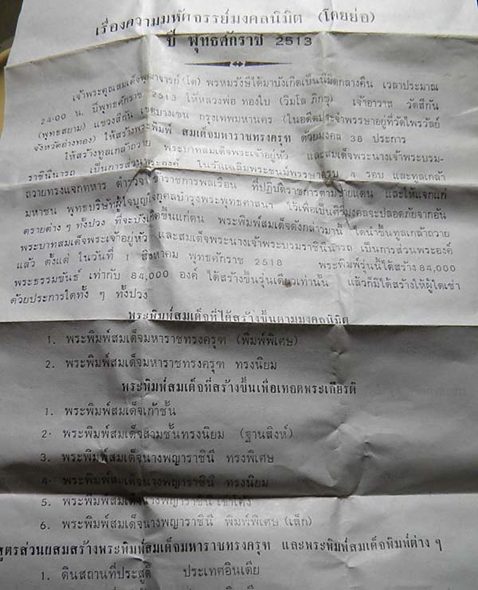 เรื่องความมหัศจรรย์มงคลนิมิต (โดยย่อ)
ปี พุทธศักราช 2513
เจ้าพระคุณสมเด็จพุฒาจารย์(โต) พรหมรังษีได้มาบังเกิดเป็นนิมิตกลางคืน เวลาประมาณ
24.00 น. ปีพุทธศักราช 2513 ให้หลวงพ่อ ทองใบ (วิมโล ภิกขุ) เจ้าอาวาส วัดสีกัน
(พุทธสยาม) แขวงสีกัน เขตบางเขน กรุงเทพมหานคร (ในอดีตจำพรรษาอยู่ที่วัดไพรวัลย์
จังหวัดอ่างทอง) ให้สร้างพระพิมพ์ สมเด็จมหาราชทรงครุฑ ด้วยมงคล 38 ประการ
ให้สร้างทูลเกล้าถวาย พระบาทสมเด็จพระเจ้าอยู่หัว และสมเด็จพระนางเจ้าพระบรม-
ราชินีนารถ เป็นการส่วนพระองค์ ในวันเฉลิมพระชนม์พรรษาครบ 4 รอบ และทูลเกล้า
ถวายทรงแจกทหาร ตำรวจ ข้าราชการพลเรือน ที่ปฏิบัติราชการตามชายแดน และให้แจกแก่
มหาชน พุทธบริษัทผู้ใจบุญที่บำรุงพระพุทธศาสนา ไว้เพื่อเป็นศิริมงคลจะปลอดภัยจากอัน
ตรายต่าง ๆ ทั้งปวง ที่จะบังเกิดขึ้นแก่ตน พระพิมพ์สมเด็จดังกล่าวมานี้ ได้นำขึ้นทูลเกล้าถวาย
พระบาทสมเด็จพระเจ้าอยู่หัว และสมเด็จพระนางเจ้าพระบรมราชินีนารถ เป็นการส่วนพระองค์
แล้ว ตั้งแต่ ในวันที่ สิงหาคม พุทธศักราช 2518 พระพิมพ์รุ่นนี้ได้สร้าง 84,000
พระธรรมขันธ์ เท่ากับ 84,000 องค์ ได้สร้างขึ้นรุ่นเดียวเท่านั้น แล้วก็มิได้สร้างให้ผู้ใดเช่า
ด้วยประการใดทั้ง ๆ ทั้งปวง
พระพิมพ์สมเด็จที่ได้สร้างขึ้นตามมงคลนิมิต
1. พระพิมพ์สมเด็จมหาราชทรงครุฑ (พิมพ์พิเศษ)
2. พระพิมพ์สมเด็จมหาราชทรงครุฑ ทรงนิยม
พระพิมพ์สมเด็จที่สร้างขึ้นเพื่อเทอดพระเกียรติ
1. พระพิมพ์สมเด็จเก้าชั้น
2. พระพิมพ์สมเด็จสามชั้นทรงนิยม (ฐานสิงห์)
3. พระพิมพ์สมเด็จนางพญาราชินี ทรงพิเศษ
4. พระพิมพ์สมเด็จนางพญาราชินี ทรงนิยม
5. พระพิมพ์สมเด็จนางพญาราชินี เข่าโค้ง
6. พระพิมพ์สมเด็จนางพญาราชินี พิมพ์พิเศษ (เล็ก)
สูตรส่วนผสมสร้างพระพิมพ์สมเด็จมหาราชทรงครุฑ และพระพิมพ์สมเด็จพิมพ์ต่าง ๆ
1. ดินสถานที่ประสูติ ประเทศอินเดีย